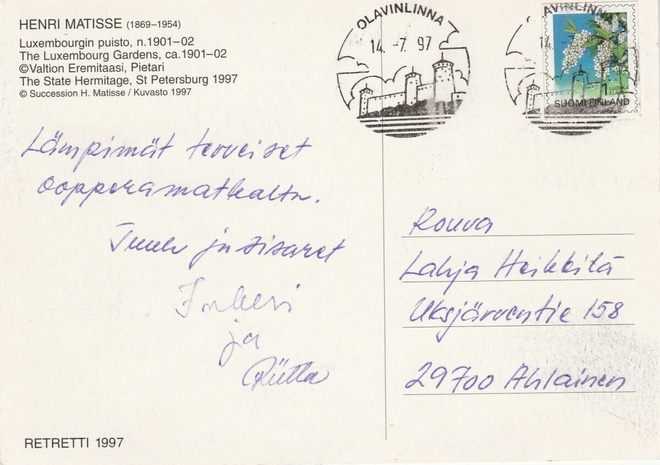 HENRI MATISSE (1869–1954)
Luxembourgin puisto, n.1901–02
The Luxembourg Gardens, ca.1901–02
©Valtion Eremitaasi, Pietari
The State Hermitage, St Petersburg 1997
© Succession H. Matisse / Kuvasto 1997
OLAVINLINNA
14. –7. 97
AVINLINNA
14
1
SUOMI FINLAND
Lämpimät terveiset
oopperamatkalta.
ja sisaret
Inkeri
ja
Riitta
Rouva
Lahja Heikkilä
Uksjärventie 158
29700 Ahlainen
RETRETTI 1997